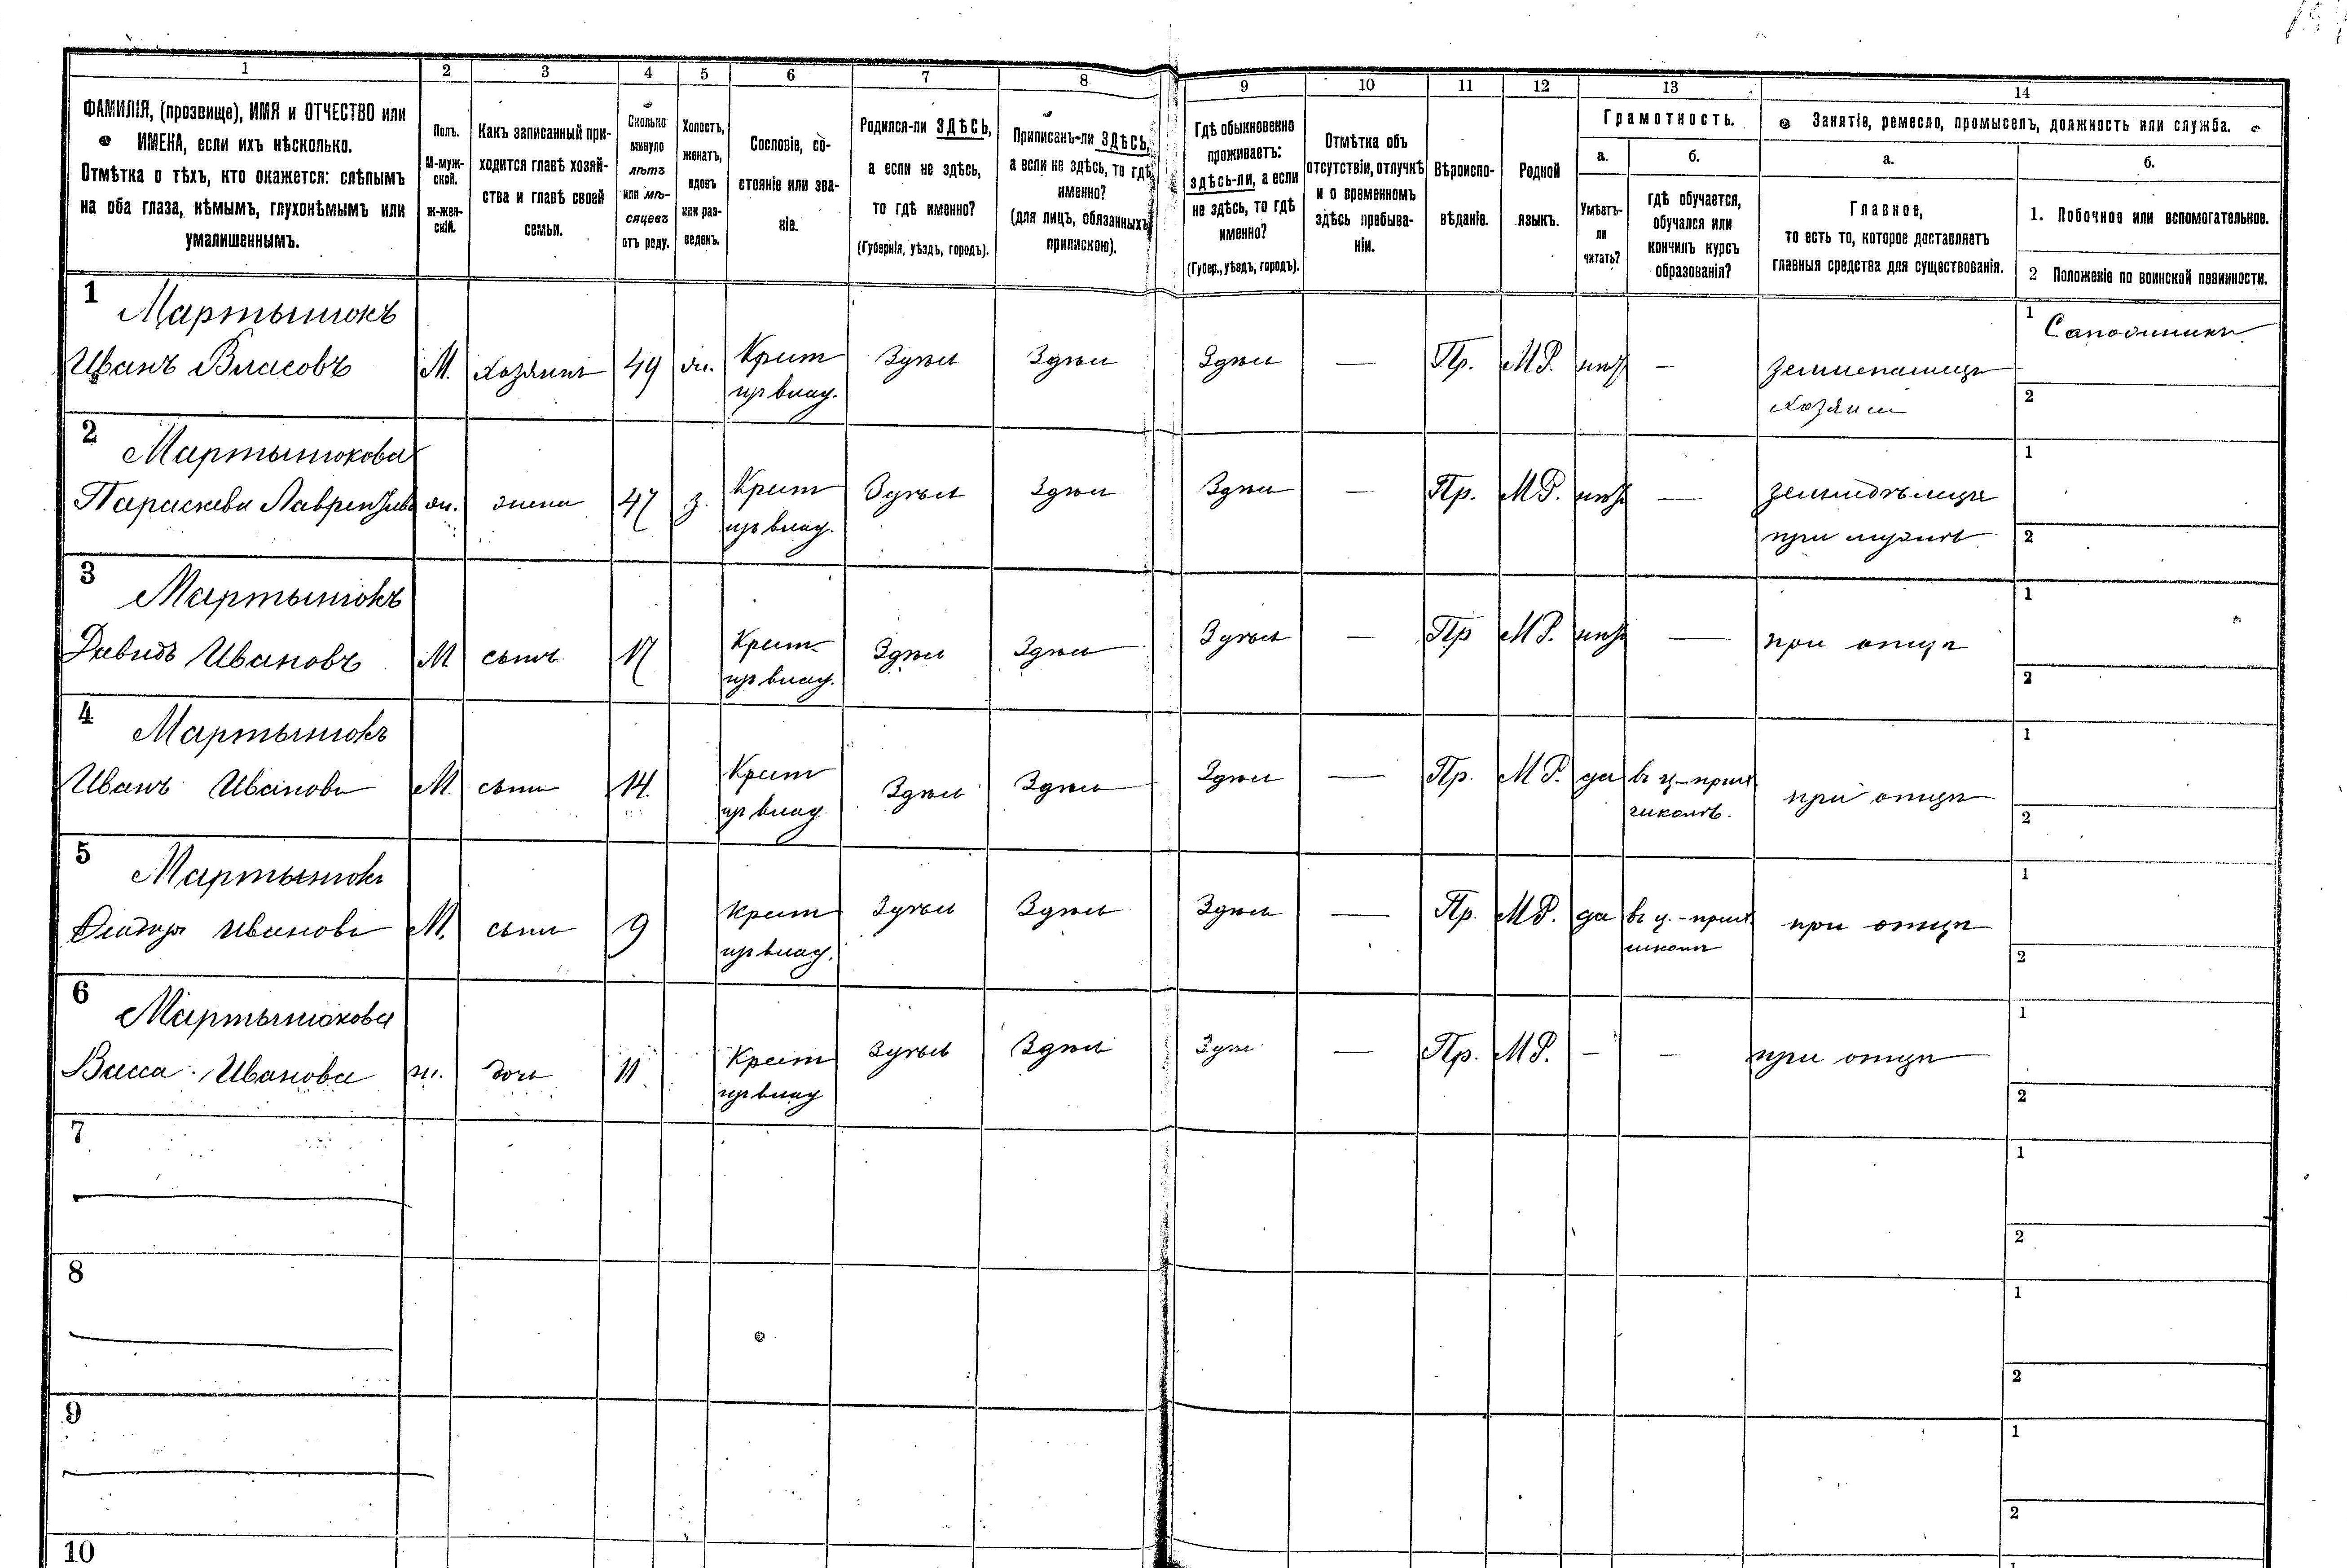 1 2 3 4 5 6 7 8 9 10 11 12 13 14
ФАМИЛІЯ, (прозвище), ИМЯ и ОТЧЕСТВО или
ИМЕНА, если ихъ нѣсколько.
Отмѣтка о тѣхъ, кто окажется: слѣпымъ
на оба глаза, нѣмымъ, глухонѣмымъ или
умалишеннымъ.
Полъ.
М-муж-
ской.
ж-жен-
скій.
Какъ записанный при-
ходится главѣ хозяй-
ства и главѣ своей
семьи.
Сколько
минуло
лѣтъ
или мѣ-
сяцевъ
отъ роду.
Холостъ,
женатъ,
вдовъ
или раз-
веденъ.
Сословіе, со-
стояніе или зва-
ніе.
Родился-ли ЗДѢСЬ,
а если не здѣсь,
то гдѣ именно?
(Губернія, уѣздъ, городъ).
Приписанъ-ли ЗДѢСЬ,
а если не здѣсь, то гдѣ
именно?
(для лицъ, обязанныхъ
припискою).
Гдѣ обыкновенно
проживаетъ:
здѣсь-ли, а если
не здѣсь, то гдѣ
именно?
(Губер., уѣздъ, городъ).
Отмѣтка объ
отсутствіи, отлучкѣ
и о временномъ
здѣсь пребыва-
ніи.
Вѣроиспо-
вѣданіе.
Родной
языкъ.
Грамотность.
а.
Умѣетъ-
ли
читать?
б.
гдѣ обучается,
обучался или
кончилъ курсъ
образованія?
Занятіе, ремесло, промыселъ, должность или служба.
а.
Главное,
то есть то, которое доставляетъ
главныя средства для существованія.
б.
1. Побочное или вспомогательное.
2 Положеніе по воинской повинности.
1 Мартынюкъ
Иванъ Власовъ М. хозяинъ 49 ж. Крест Здѣсь Здѣсь Здѣсь — Пр. М Р. нѣт — 1 Сапожникъ
из влад. земледѣлецъ
хозяин 2
2 Мартынюкова 1
Параскева Лаврентьева ж. жена 47 з. Крест Здѣсь Здѣсь Здѣсь — Пр. М Р. нѣт —
из влад. при мужѣ 2
3 Мартынюкъ 1
Давидъ Ивановъ М сынъ 17 Крест Здѣсь Здѣсь Здѣсь — Пр М Р. нѣт — при отцѣ
из влад. 2
4 Мартынюкъ 1
Иванъ Ивановъ М. сынъ 14. Крест Здѣсь Здѣсь Здѣсь — Пр. М Р. да въ ц-прих при отцѣ
из влад школѣ. 2
5 Мартынюкъ 1
Ивановъ М. сынъ 9 Крест Здѣсь Здѣсь Здѣсь — Пр. М Р. да въ ц.-прих при отцѣ
из влад. школѣ 2
6 Мартынюкова 1
Васса Иванова ж. дочь 11 Крест Здѣсь Здѣсь Здѣс — Пр. М Р. — — при отцѣ
из влад 2
7 1
2
8 1
2
9 1
2
10 1